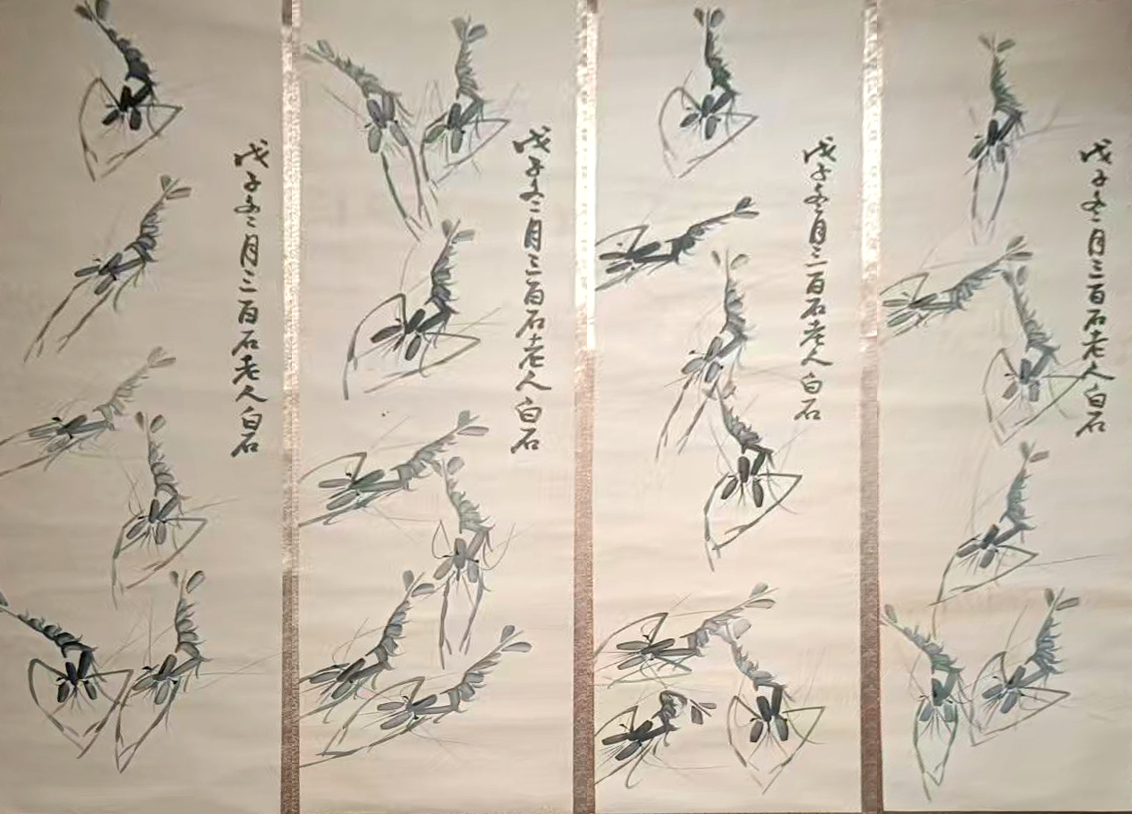 戊子冬月三百石老人白石
戊子冬月三百石老人白石
戊子冬月三百石老人白石
戊子冬月三百石老人白石